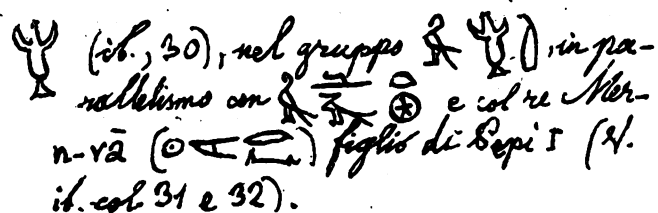 (ib., 30), nel gruppo , in pa-
rallelismo con e col re Mer-
n-rā ( ) figlio di Pepi I (V.
ib. col 31 e 32).